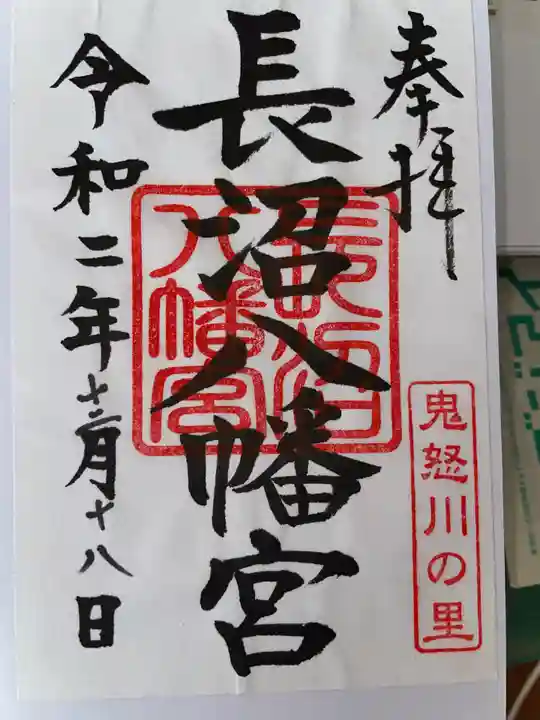 奉拝
鬼怒川の里
長沼八幡宮
長沼
八幡宮
令和二年十二月十八日